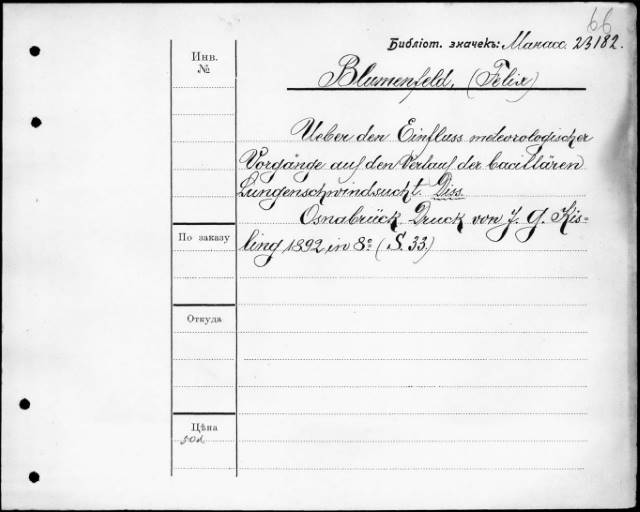 66
Библіот. значекъ: Манасс. 23182.
Инв.
№
Blumenfeld, (Felix)
Ueber den Einfluss meteorologischer
Vorgänge auf den Verlauf der bacillären
Lungenschwindsucht. Diss.
Osnabrück Druck von J. G. Kis-
ling 1892 in 8º (S. 33.)
По заказу
Откуда
Цѣна